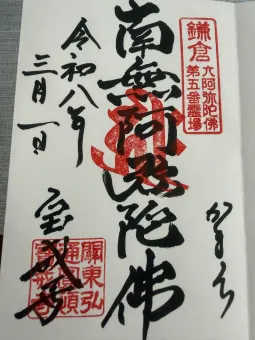 鎌倉
六阿弥陀佛
第五番霊場
かまくら
南無阿弥陀佛
令和八年
三月一日
宝戒寺
關東弘